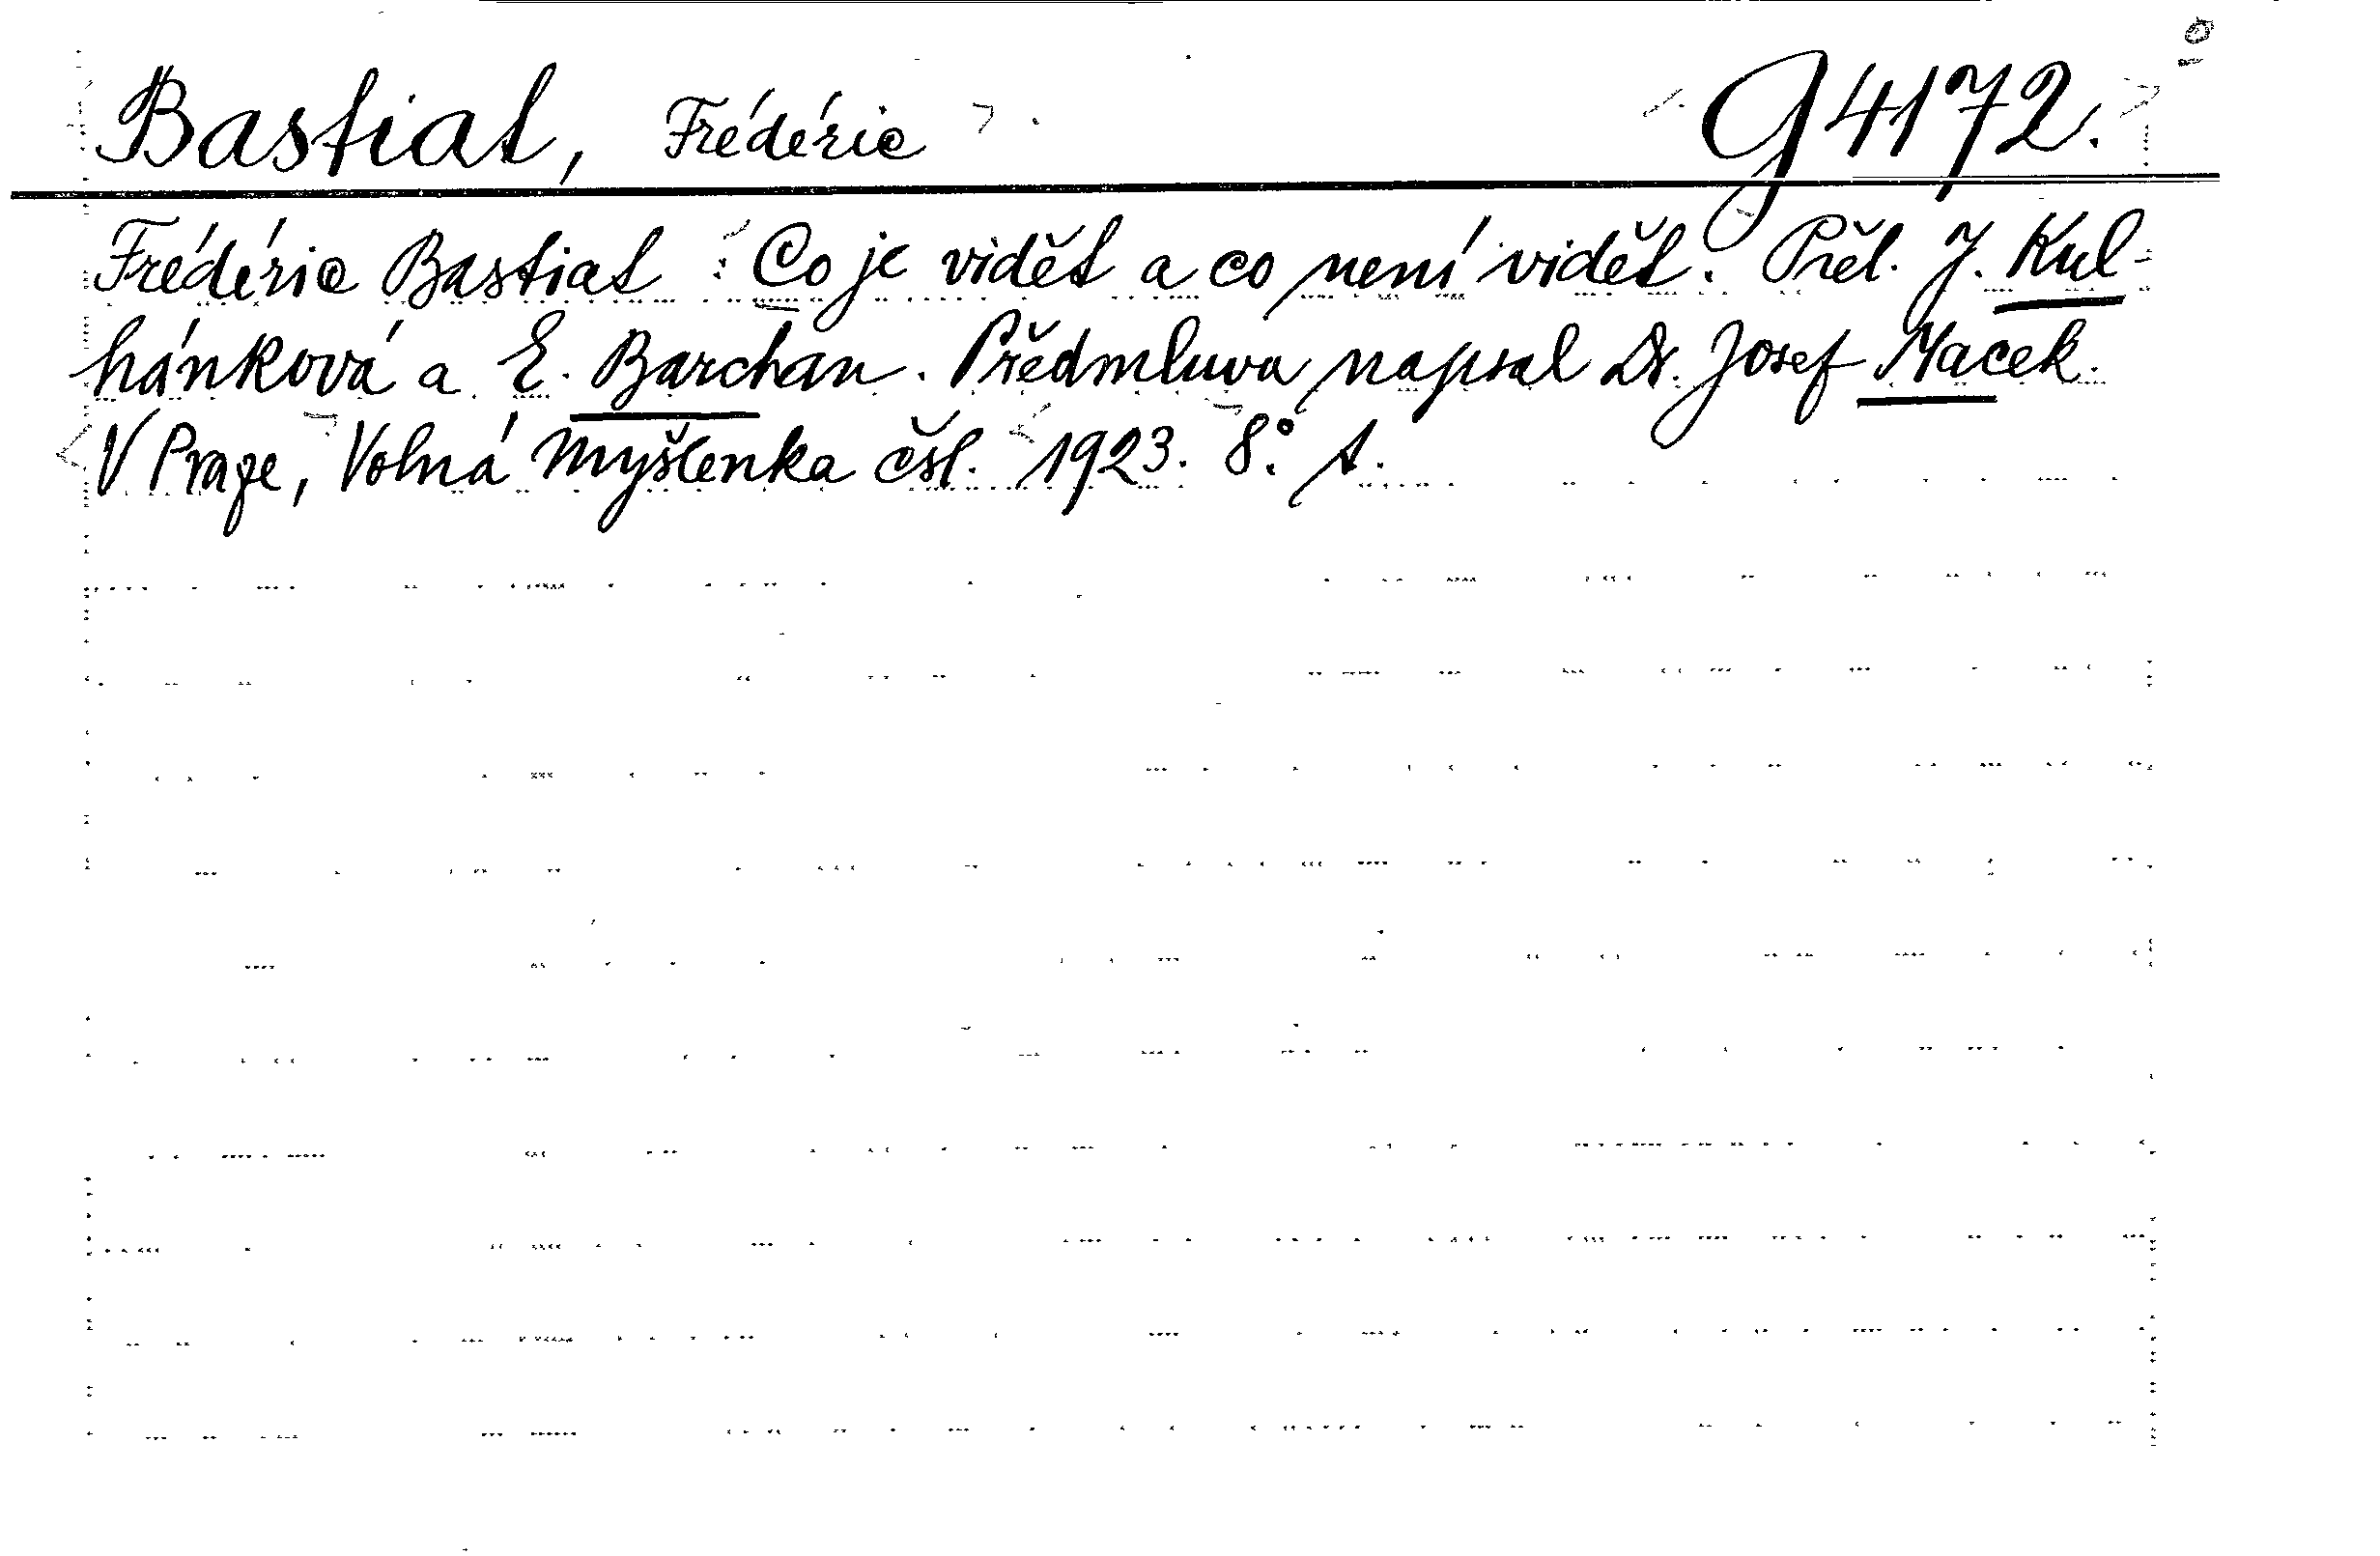 Bastiat, Frédéric G 4172.
Frédéric Bastiat : Co je vidět a co není vidět. Přel. J. Kul-
hánková a E. Barchan. Předmluvu napsal Dr. Josef Macek.
V Praze, Volná Myšlenka čsl. 1923. 8°.